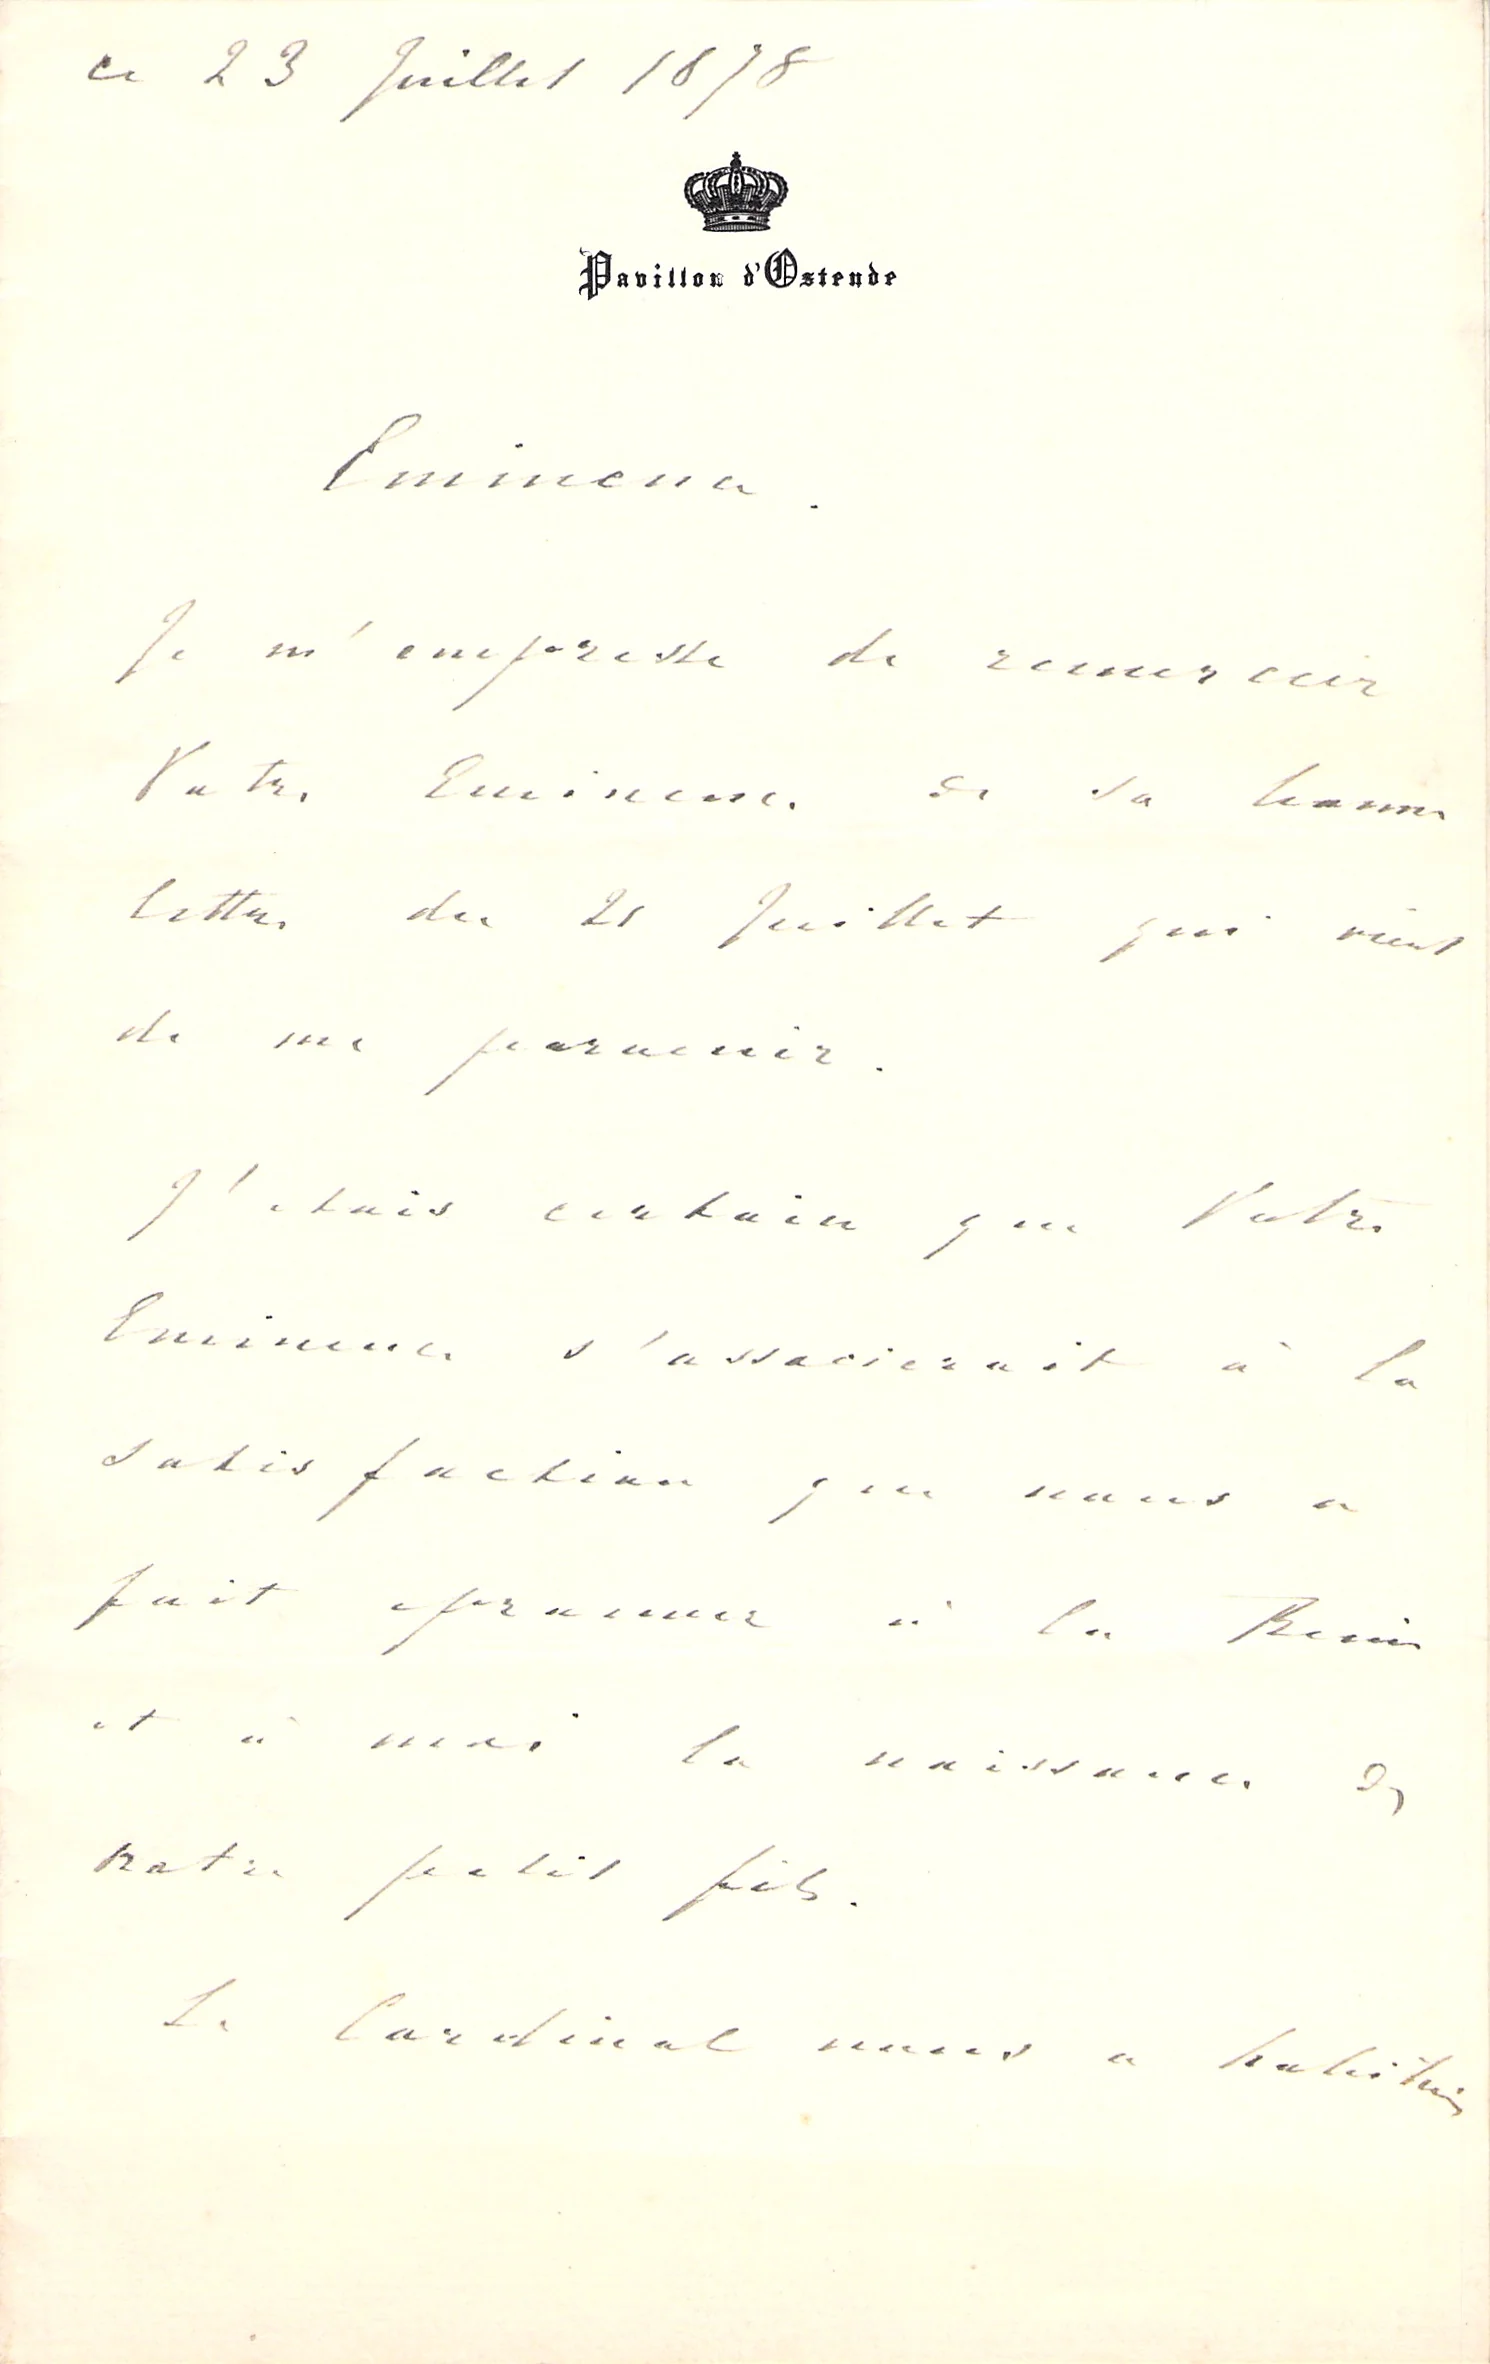 ce 23 Juillet 1878
Pavillon d'Ostende
Eminence.
Je m'empresse de remercier
Votre Eminence de sa bonne
lettre du 21 Juillet qui vient
de me parvenir.
J'etais certain que Votre
Eminence s'associerait à la
satisfaction que nous a
fait eprouver à la Reine
et à moi la naissance de
notre petit fils.
Le Cardinal nous a habitués